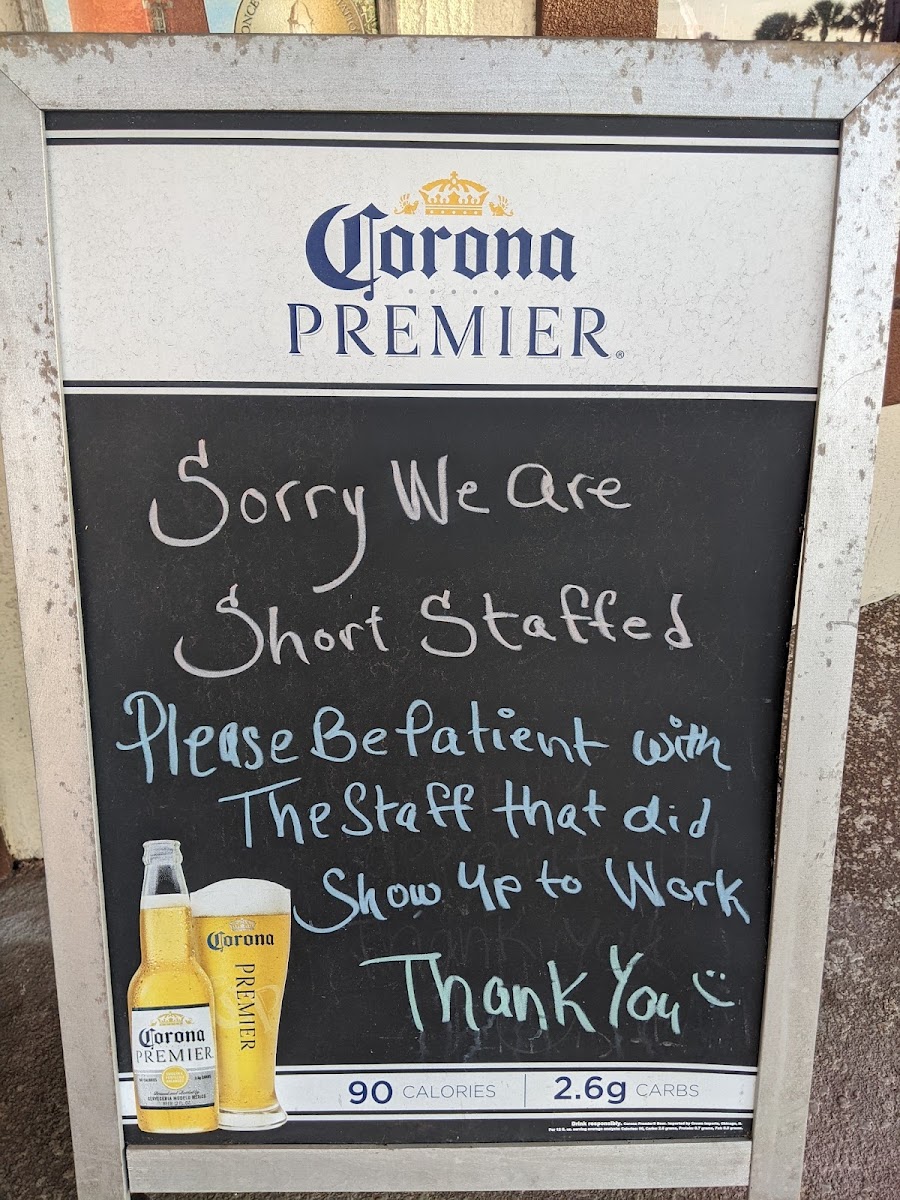 Corona
PREMIER®
Sorry We are
Short Staffed
Please Be Patient with
The Staff that did
Show up to Work
Thank You
Corona
PREMIER
Corona
PREMIER
90 CALORIES | 2.6g CARBS
Drink responsibly.